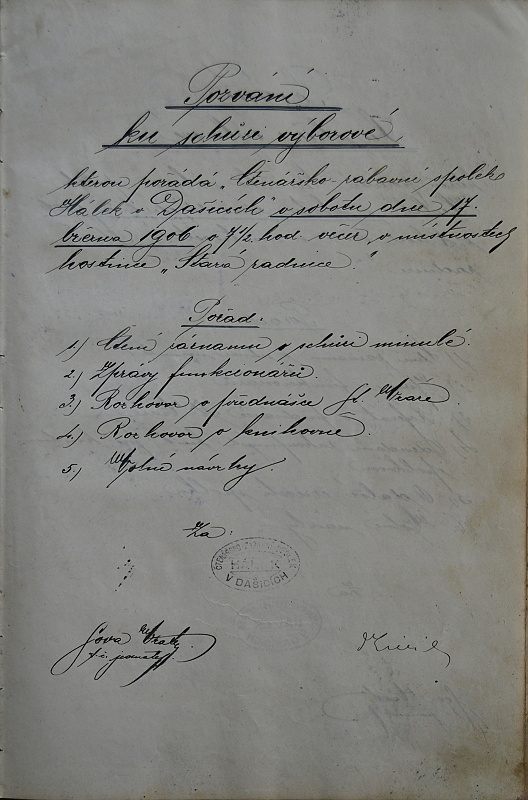 Pozvání
ku schůzi výborové
kterou pořádá „Čtenářsko-zábavní spolek
Hálek v Dašicích" v sobotu dne 17.
března 1906 o 7 1/2 hod večer v místnostech
hostince „Stará radnice."
Pořad:
1.) Čtení záznamu o schůzi minulé.
2.) Zprávy funkcionářů.
3.) Rozhovor o přednášce
4.) Rozhovor o knihovně.
5.) Volné návrhy.
Za:
ČTENÁŘSKO-ZÁBAVNÍ SPOLEK
HÁLEK
V DAŠICÍCH
t. č. jednatel.